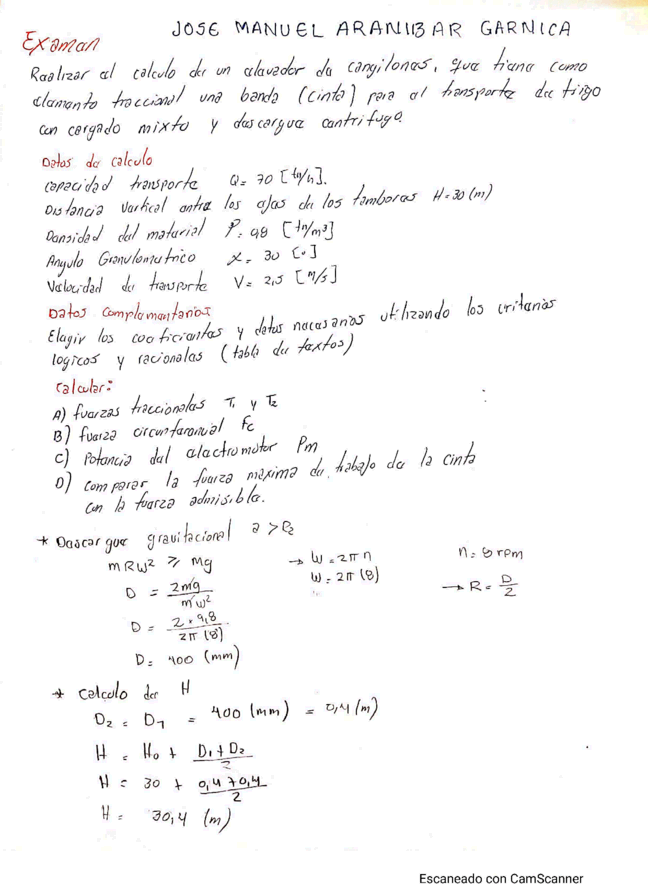 JOSE MANUEL ARANIBAR GARNICA
Examen
Realizar el calculo de un elevador de cangilones, que tiene como
elemento traccional una banda (cinta) para el transporte de trigo
con cargado mixto y descargue centrifugo.
Datos de calculo
capacidad transporte Q= 70 [tn/h].
Distancia Vertical entre los ejes de los tambores H=30 (m)
Densidad del material ρ= 0,8 [tn/m³]
Angulo Granulometrico α= 30 [°]
Velocidad de transporte V= 2,5 [m/s]
Datos Complementarios
Elegir los coeficientes y datos necesarios utilizando los criterios
logicos y racionales (tabla de textos)
Calcular:
A) fuerzas traccionales T₁ y T₂
B) fuerza circunferencial Fc
C) Potencia del electromotor Pm
D) comparar la fuerza maxima de trabajo de la cinta
con la fuerza admisible.
* Descargue gravitacional a > R₂
mRω² ≥ mg → W = 2πn n= 8 rpm
D = 2mg / mω² W = 2π (8) → R = D/2
D = 2 * 9,8 / 2π (8)
D= 400 (mm)
* Calculo de H
D₂ = D₁ = 400 (mm) = 0,4 (m)
H = H₀ + D₁+D₂ / 2
H = 30 + 0,4+0,4 / 2
H = 30,4 (m)
Escaneado con CamScanner